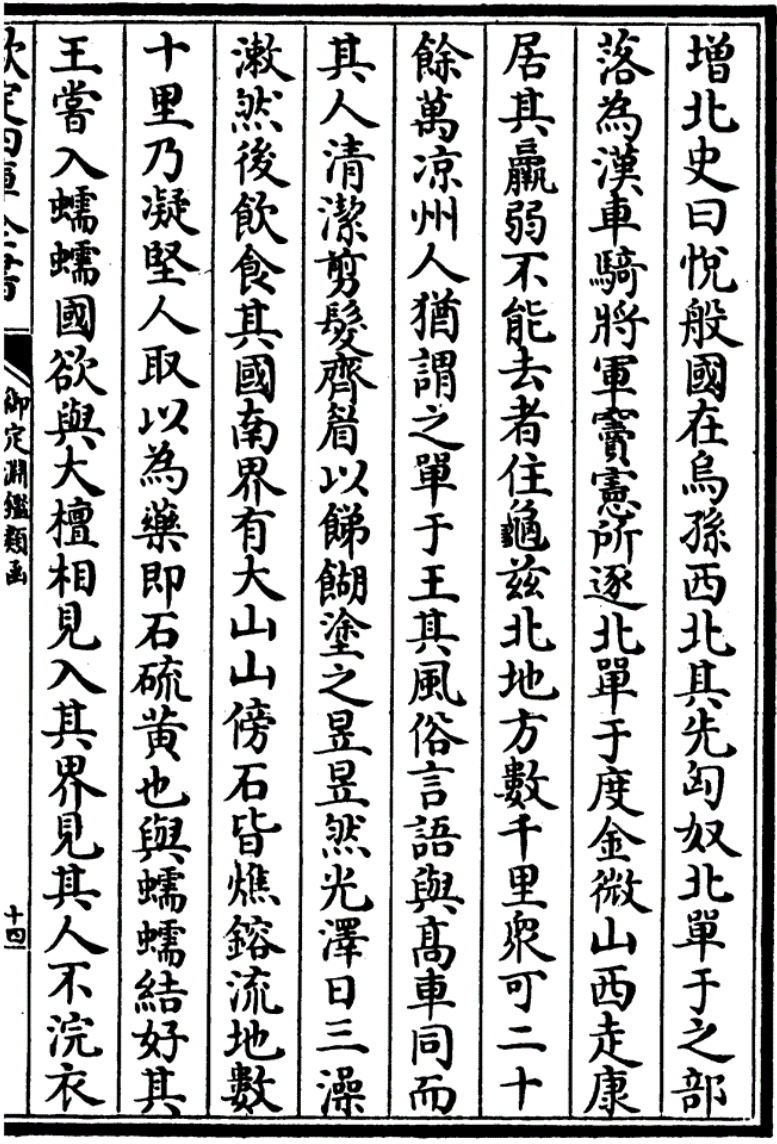 增北史曰悅般國在烏孫西北其先匈奴北單于之部
落為漢車騎將軍竇憲所逐北單于度金微山西走康
居其羸弱不能去者住龜茲北地方數千里衆可二十
餘萬凉州人猶謂之單于王其風俗言語與高車同而
其人清潔剪髮齊眉以餳餬塗之昱昱然光澤日三澡
漱然後飲食其國南界有大山山傍石皆燋鎔流地數
十里乃凝堅人取以為藥即石硫黄也與蠕蠕結好其
王嘗入蠕蠕國欲與大檀相見入其界見其人不浣衣
欽定四庫全書
御定淵鑑類函
十四